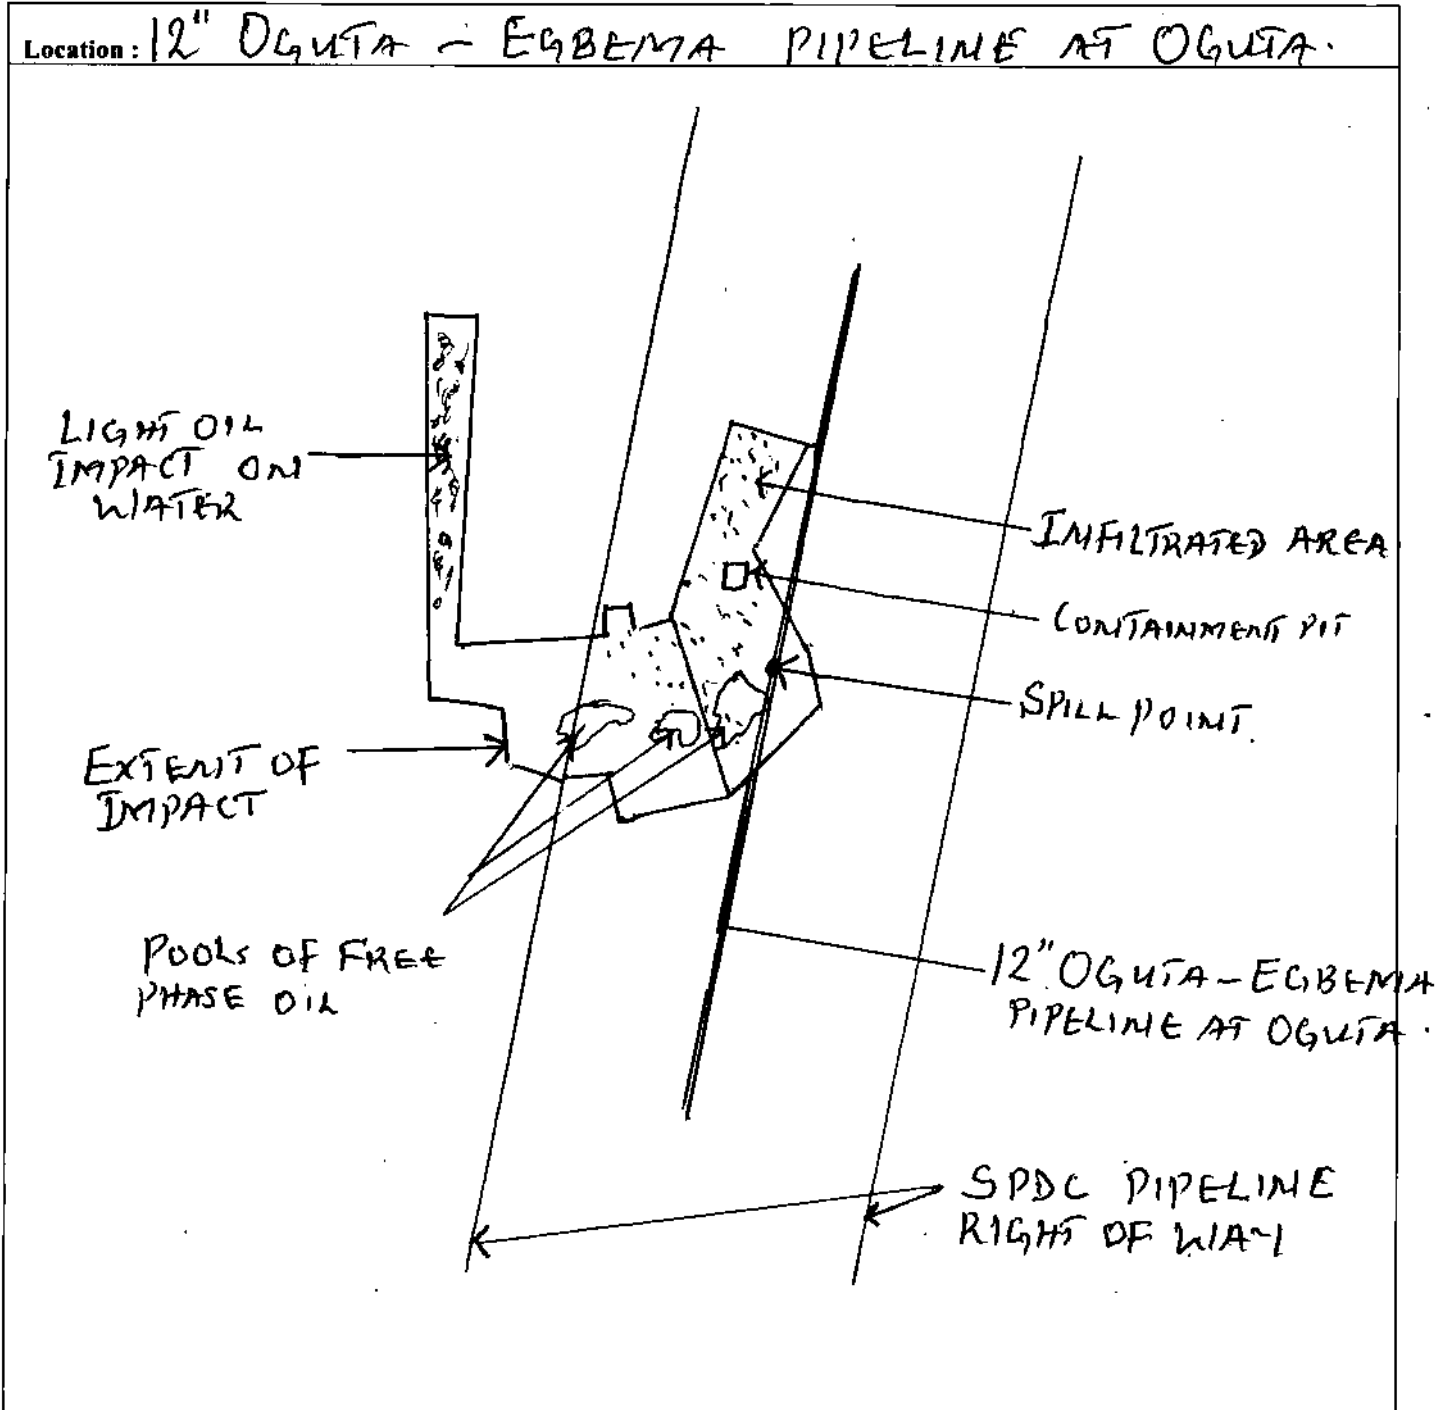 Location : 12" OGUTA - EGBEMA PIPELINE AT OGUTA.
LIGHT OIL
IMPACT ON
WATER
INFILTRATED AREA
CONTAINMENT PIT
SPILL POINT.
EXTENT OF
IMPACT
POOLS OF FREE
PHASE OIL
12" OGUTA - EGBEMA
PIPELINE AT OGUTA.
SPDC PIPELINE
RIGHT OF WAY